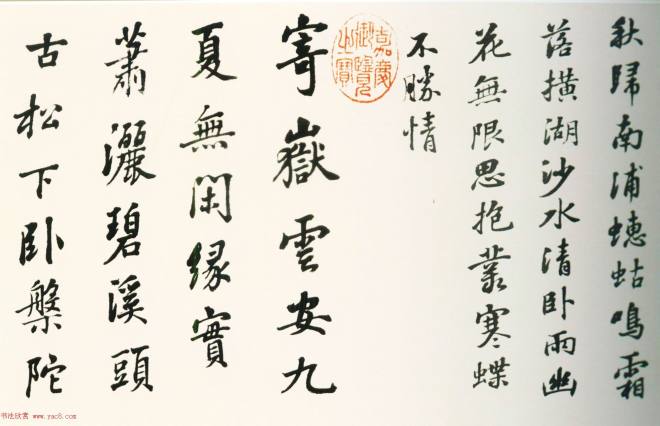 秋歸南浦蟪蛄鳴霜
落橫湖沙水清卧雨幽
花無限思抱叢寒蝶
不勝情
嘉慶
御覽
之寶
寄嶽雲安九
夏無閑緣實
蕭灑碧溪頭
古松下卧槃陀
书法欣赏 www.yac8.com